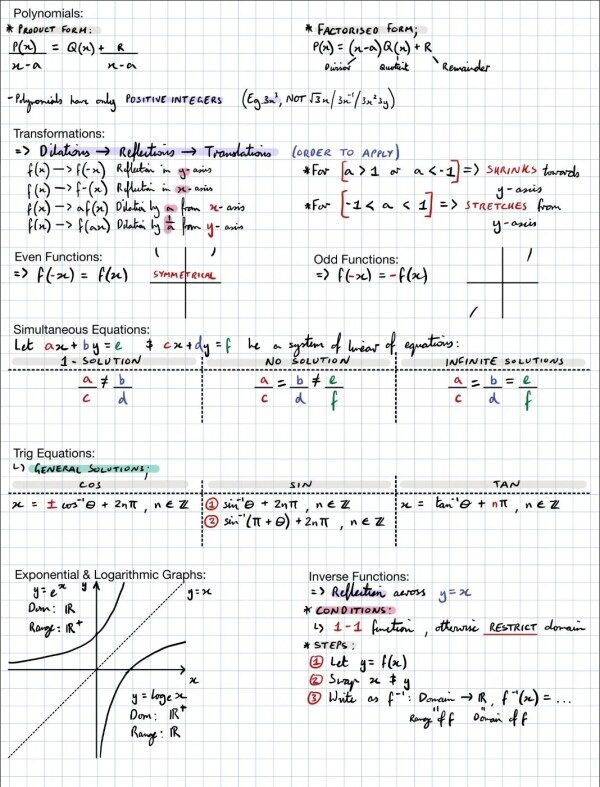 Polynomials:
* PRODUCT FORM:
P(x)/x-a = Q(x) + R/x-a
* FACTORISED FORM;
P(x) = (x-a)Q(x) + R
Divisor Quotient Remainder
- Polynomials have only POSITIVE INTEGERS (Eg. 3x³, NOT √3x / 3x⁻¹ / 3x²3y)
Transformations:
=> Dilations → Reflections → Translations (ORDER TO APPLY)
f(x) → f(-x) Reflection in y-axis
f(x) → f-(x) Reflection in x-axis
f(x) → af(x) Dilation by a from x-axis
f(x) → f(ax) Dilation by 1/a from y-axis
* For [a > 1 or a < -1] => SHRINKS towards
y-axis
* For [-1 < a < 1] => STRETCHES from
y-axis
Even Functions:
=> f(-x) = f(x)
SYMMETRICAL
Odd Functions:
=> f(-x) = -f(x)
Simultaneous Equations:
Let ax + by = e & cx + dy = f be a system of linear of equations:
1-SOLUTION NO SOLUTION INFINITE SOLUTIONS
a/c ≠ b/d a/c = b/d ≠ e/f a/c = b/d = e/f
Trig Equations:
↳ GENERAL SOLUTIONS;
COS SIN TAN
x = ± cos⁻¹θ + 2nπ, n ∈ ℤ ① sin⁻¹θ + 2nπ, n ∈ ℤ x = tan⁻¹θ + nπ, n ∈ ℤ
② sin⁻¹(π + θ) + 2nπ, n ∈ ℤ
Exponential & Logarithmic Graphs:
y = eˣ
Dom: ℝ
Range: ℝ⁺
y
y = x
x
y = logₑx
Dom: ℝ⁺
Range: ℝ
Inverse Functions:
=> Reflection across y = x
* CONDITIONS:
↳ 1-1 function, otherwise RESTRICT domain
* STEPS:
① Let y = f(x)
② Swap x & y
③ Write as f⁻¹: Domain → ℝ, f⁻¹(x) = ...
Range of f Domain of f